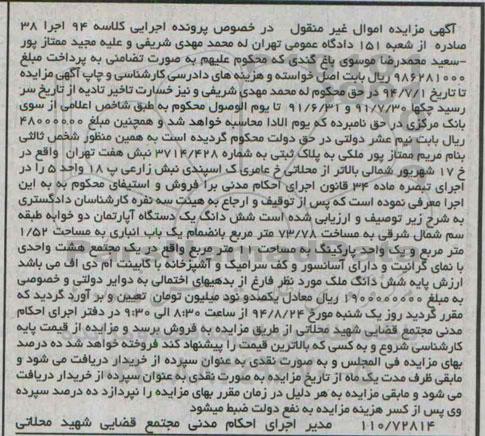 آگهی مزایده اموال غیر منقول در خصوص پرونده اجرایی کلاسه ۹۴ اجرا ۳۸
صادره از شعبه ۱۵۱ دادگاه عمومی تهران له محمد مهدی شریفی و علیه مجید ممتاز پور
-سعید محمدرضا موسوی باغ کندی که محکوم علیهم به صورت تضامنی به پرداخت مبلغ
۹۸۶۲۸۱۰۰۰ ریال بابت اصل خواسته و هزینه های دادرسی کارشناسی و چاپ آگهی مزایده
تا تاریخ ۹۴/۷/۱ در حق محکوم له محمد مهدی شریفی و نیز خسارت تاخیر تادیه از تاریخ سر
رسید چکها ۹۱/۷/۳۰ و ۹۱/۶/۳۱ تا یوم الوصول محکوم به طبق شاخص اعلامی از سوی
بانک مرکزی در حق نامبرده که یوم الادا محاسبه خواهد شد و همچنین مبلغ ۴۸۰۰۰۰۰۰
ریال بابت نیم عشر دولتی در حق دولت محکوم گردیده است به همین منظور شخص ثالثی
بنام مریم ممتاز پور ملکی به پلاک ثبتی به شماره ۳۷۱۴/۴۲۸ نبش هفت تهران واقع در
خ ۱۷ شهریور شمالی بالاتر از محلاتی خ عامری ک اسپندی نبش زارعی پ ۱۸ واحد ۵ را در
اجرای تبصره ماده ۳۴ قانون اجرای احکام مدنی برا فروش و استیفای محکوم به به این
اجرا معرفی نموده است که پس از توقیف و ارجاع به هیئت سه نفره کارشناسان دادگستری
به شرح زیر توصیف و ارزیابی شده است شش دانگ یک دستگاه آپارتمان دو خوابه طبقه
سم شمال شرقی به مساحت ۷۳/۷۸ متر مربع بانضمام یک باب انباری به مساحت ۱/۵۲
متر مربع و یک واحد پارکینگ به مساحت ۱۱ متر مربع واقع در یک مجتمع هشت واحدی
با نمای گرانیت و دارای آسانسور و کف سرامیک و آشپزخانه با کابینت ام دی اف می باشد
ارزش پایه شش دانگ ملک مورد نظر فارغ از بدهیهای احتمالی به دوایر دولتی و خصوصی
به مبلغ ۱۹۰۰۰۰۰۰۰۰ ریال معادل یکصدو نود میلیون تومان تعیین و بر آورد گردید که
مقرر گردید روز یک شنبه مورخ ۹۴/۸/۲۴ از ساعت ۸:۳۰ الی ۹:۳۰ در دفتر اجرای احکام
مدنی مجتمع قضایی شهید محلاتی از طریق مزایده به فروش برسد و مزایده از قیمت پایه
کارشناسی شروع و به کسی که بالاترین قیمت را پیشنهاد کند فروخته خواهد شد ده درصد
بهای مزایده فی المجلس و به صورت نقدی به عنوان سپرده از خریدار دریافت می شود و
مابقی ظرف مدت یک ماه از تاریخ مزایده به صورت نقدی به عنوان سپرده از خریدار دریافت
می شود و مابقی مزایده به هر دلیل در زمان مقرر بهای مزایده را نپردازد ده درصد سپرده
وی پس از کسر هزینه مزایده به نفع دولت ضبط میشود
۱۱۰/۷۲۸۱۴ مدیر اجرای احکام مدنی مجتمع قضایی شهید محلاتی